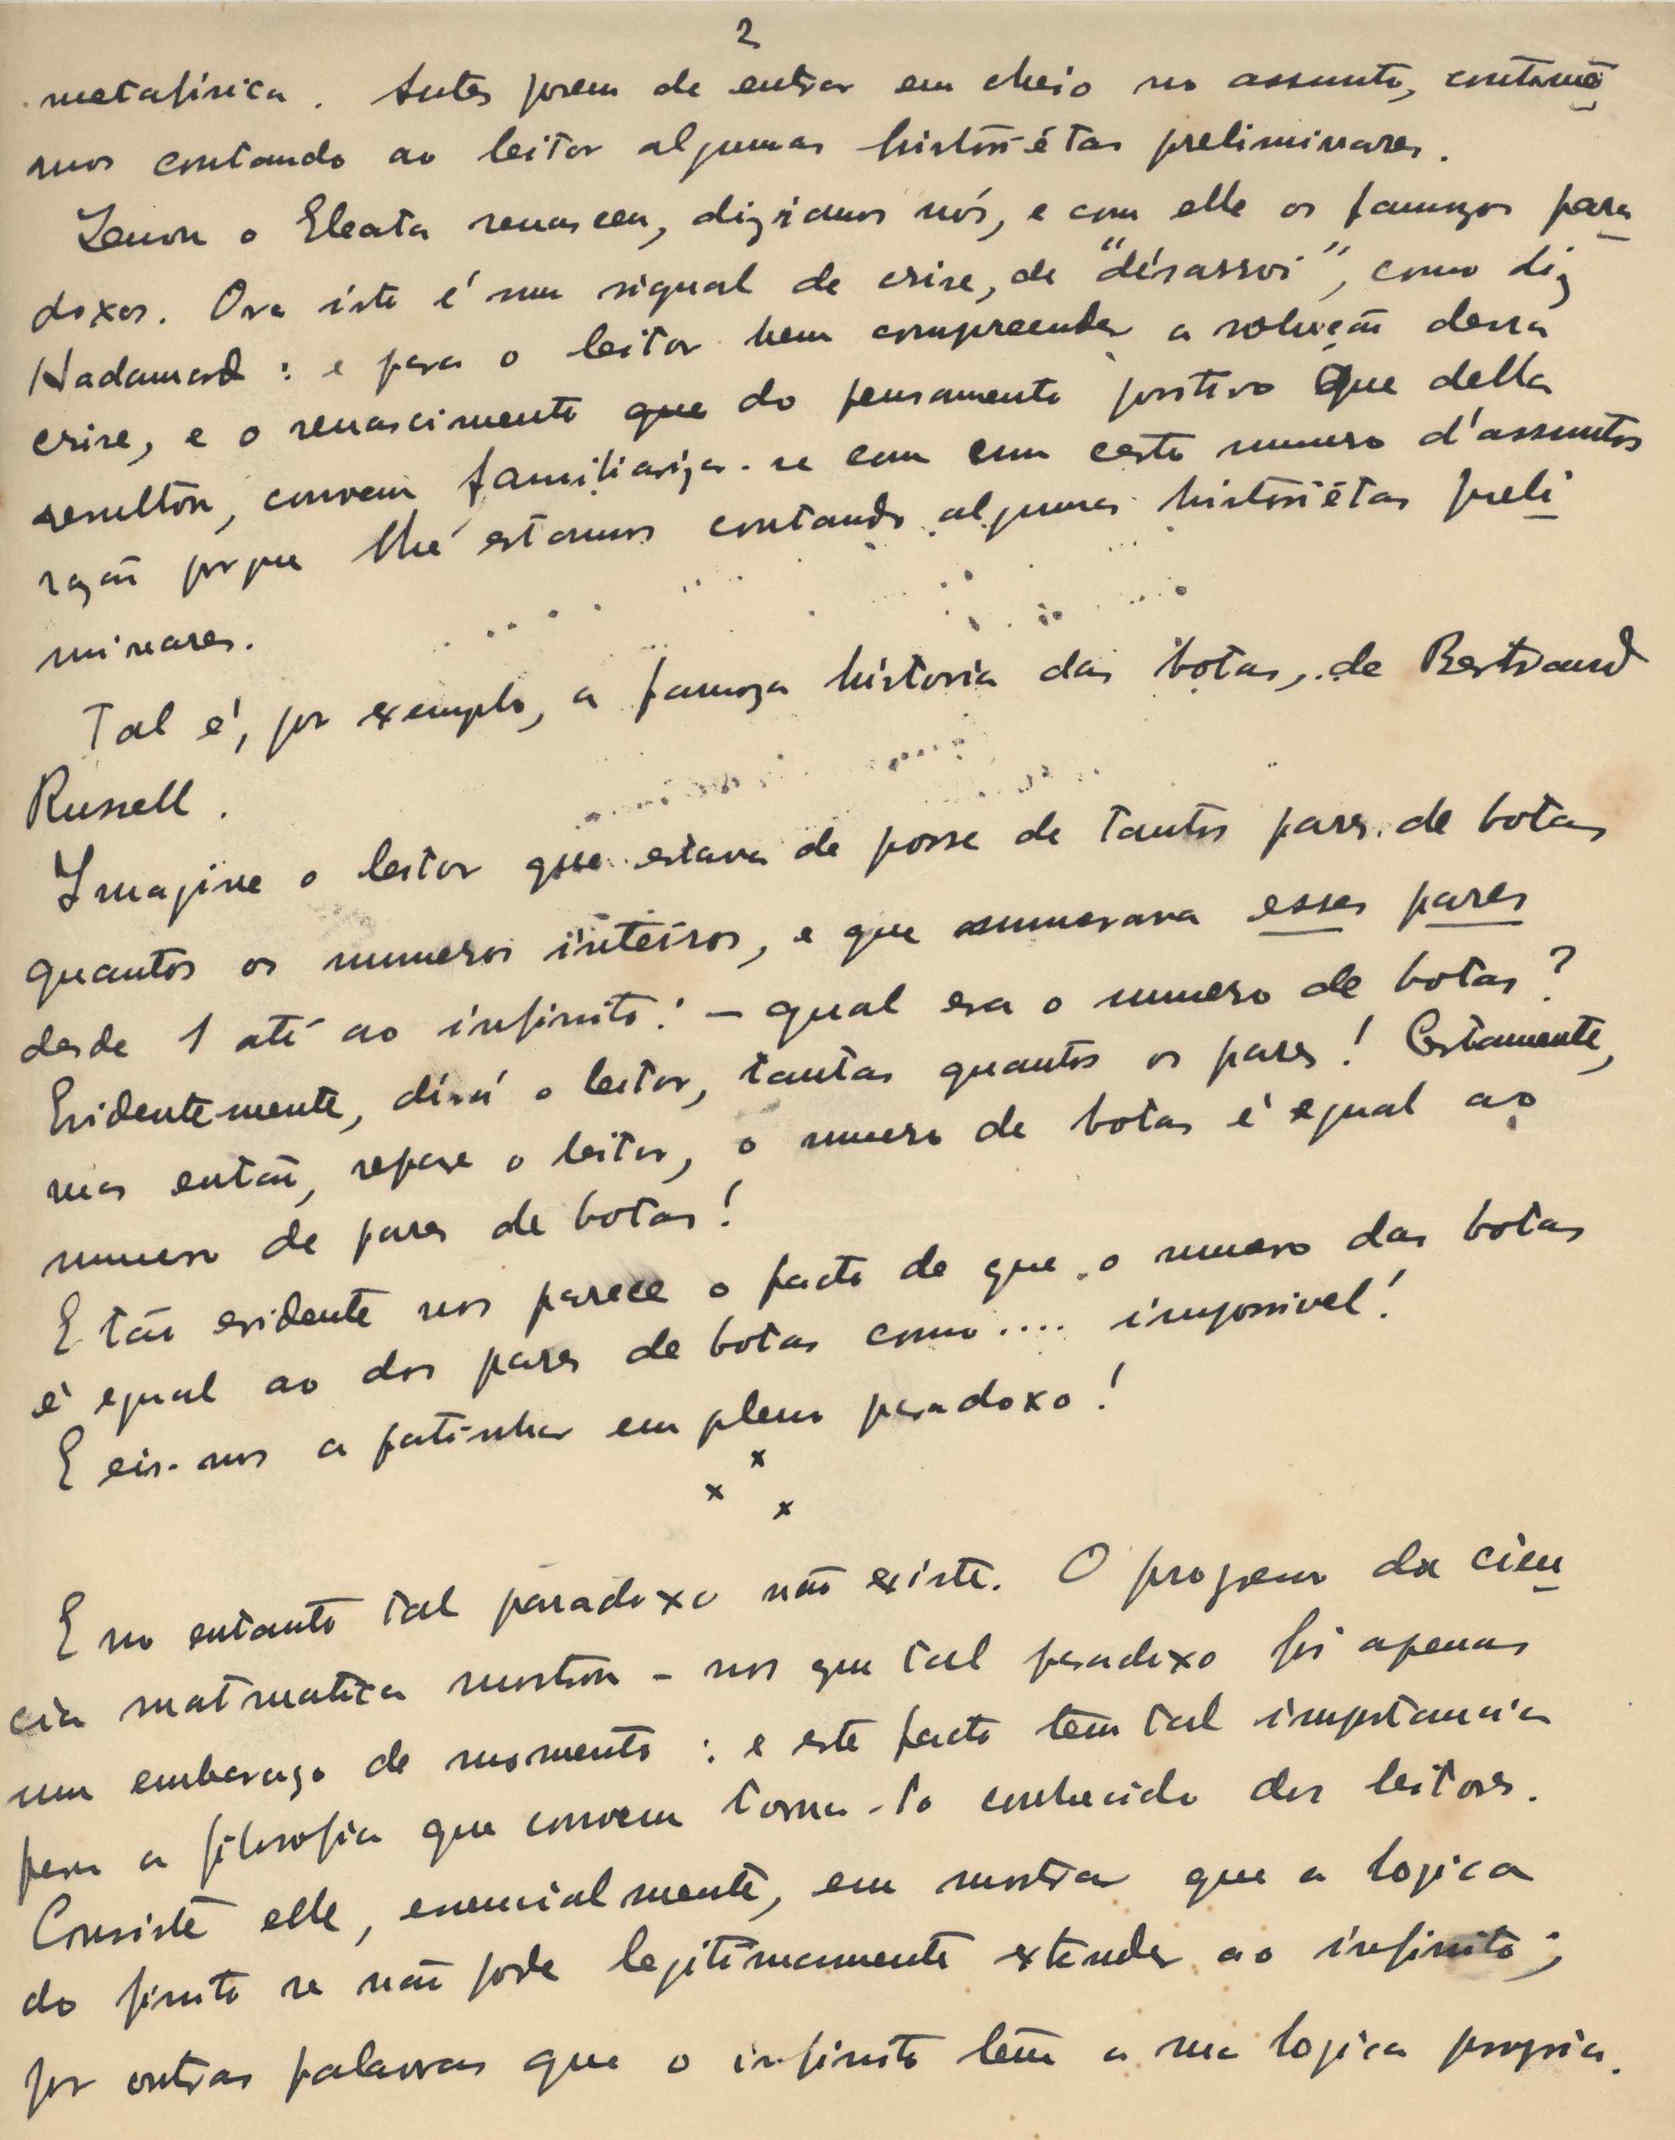 2
metafísica. Antes porem de entrar em cheio no assunto, continue
mos contando ao leitor algumas histori-étas preliminares.
Zenon o Eleata renasceu, diziamos nós, e com elle os famozos para
doxos. Ora isto é um signal de crise, de "désarroi", como diz
Hadamard : e para o leitor bem compreender a solução dessa
crise, e o renascimento que do pensamento positivo que della
resultou, convem familiarizar-se com um certo numero d'assuntos
razão porque lhe estamos contando algumas historiétas preli
minares.
Tal é, por exemplo, a famoza historia das botas, de Bertrand
Russell.
Imagine o leitor que estava de posse de tantos pares de botas
quantos os numeros inteiros, e que numerava esses pares
desde 1 até ao infinito: - qual era o numero de botas?
Evidentemente, dirá o leitor, tantas quantos os pares! Certamente,
mas então, repare o leitor, o numero de botas é egual ao
numero de pares de botas!
E tão evidente nos parece o facto de que o numero das botas
é egual ao dos pares de botas como .... impossivel!
E eis-nos a patinhar em pleno paradoxo!
x
x x
E no entanto tal paradoxo não existe. O progresso da cien
cia matmatica mostrou-nos que tal paradoxo foi apenas
um embaraço de momento : e este facto tem tal importancia
para a filosofia que convem torna-lo conhecido dos leitores.
Consiste elle, essencialmente, em mostrar que a logica
do finito se não pode legitimamente extender ao infinito;
por outras palavras que o infinito têm a sua logica propria.